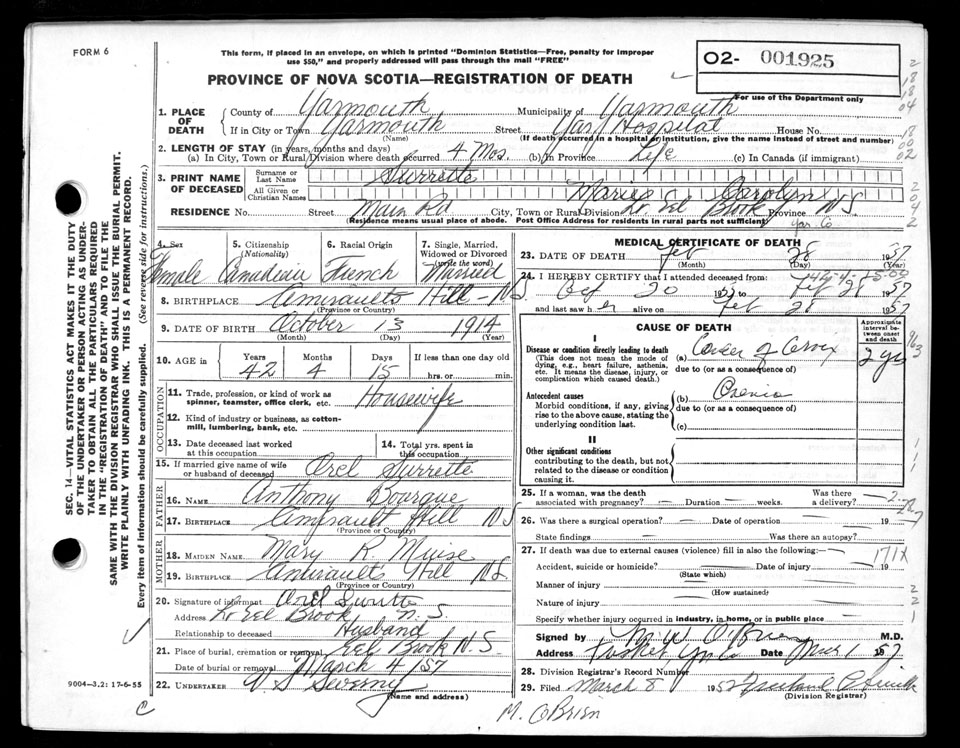 FORM 6
This form, if placed in an envelope, on which is printed "Dominion Statistics—Free, penalty for improper
use $50," and properly addressed will pass through the mail "FREE"
PROVINCE OF NOVA SCOTIA—REGISTRATION OF DEATH
02- 001925
For use of the Department only
1. PLACE OF DEATH
County of Yarmouth Municipality of Yarmouth
If in City or Town Yarmouth Street Yar. Hospital House No.
(Name) (If death occurred in a hospital or institution, give the name instead of street and number)
2. LENGTH OF STAY (in years, months and days)
(a) In City, Town or Rural Division where death occurred 4 Mos. (b) In Province Life (c) In Canada (if immigrant)
3. PRINT NAME OF DECEASED
Surname or Last Name Surrette
All Given or Christian Names Marie Carolyn
RESIDENCE No. Street Main Rd City, Town or Rural Division Lr. Eel Brook Province N.S.
(Residence means usual place of abode. Post Office Address for residents in rural parts not sufficient) Yar. Co
4. Sex Female
5. Citizenship (Nationality) Canadian
6. Racial Origin French
7. Single, Married, Widowed or Divorced (write the word) Married
8. BIRTHPLACE Amiraults Hill - N.S.
(Province or Country)
9. DATE OF BIRTH October 13 1914
(Month) (Day) (Year)
10. AGE in Years 42 Months 4 Days 15 If less than one day old hrs. or min.
OCCUPATION
11. Trade, profession, or kind of work as spinner, teamster, office clerk, etc. Housewife
12. Kind of industry or business, as cotton-mill, lumbering, bank, etc.
13. Date deceased last worked at this occupation
14. Total yrs. spent in this occupation
15. If married give name of wife or husband of deceased Orel Surrette
FATHER
16. NAME Anthony Bourque
17. BIRTHPLACE Amirault Hill N.S.
(Province or Country)
MOTHER
18. MAIDEN NAME Mary K. Muise
19. BIRTHPLACE Amiraults Hill N.S.
(Province or Country)
20. Signature of informant Orel Surette
Address Lr Eel Brook N.S.
Relationship to deceased Husband
21. Place of burial, cremation or removal Eel Brook N.S.
Date of burial or removal March 4/57
22. UNDERTAKER
(Name and address)
9004—3.2: 17-6-55
SEC. 14—VITAL STATISTICS ACT MAKES IT THE DUTY
OF THE UNDERTAKER OR PERSON ACTING AS UNDER-
TAKER TO OBTAIN ALL THE PARTICULARS REQUIRED
IN THE "REGISTRATION OF DEATH" AND TO FILE THE
SAME WITH THE DIVISION REGISTRAR WHO SHALL ISSUE THE BURIAL PERMIT.
WRITE PLAINLY WITH UNFADING INK. THIS IS A PERMANENT RECORD.
Every item of information should be carefully supplied. (See reverse side for instructions.)
MEDICAL CERTIFICATE OF DEATH
23. DATE OF DEATH Feb 28 1957
(Month) (Day) (Year)
24. I HEREBY CERTIFY that I attended deceased from:
Oct 20 to Feb 28 1957
and last saw her alive on Feb 28 1957
CAUSE OF DEATH
Approximate interval between onset and death
I
Disease or condition directly leading to death
(This does not mean the mode of dying, e.g., heart failure, asthenia, etc. It means the disease, injury, or complication which caused death.)
(a) Cancer of Cervix 2 yrs
due to (or as a consequence of)
Antecedent causes
Morbid conditions, if any, giving rise to the above cause, stating the underlying condition last.
(b)
due to (or as a consequence of)
(c)
II
Other significant conditions
contributing to the death, but not related to the disease or condition causing it.
25. If a woman, was the death associated with pregnancy? — Duration — weeks. Was there a delivery? —
26. Was there a surgical operation? — Date of operation — 19
State findings — Was there an autopsy? —
27. If death was due to external causes (violence) fill in also the following:— 171X
Accident, suicide or homicide? — Date of injury — 19
(State which)
Manner of injury —
(How sustained)
Nature of injury —
Specify whether injury occurred in industry, in home, or in public place
Signed by M. W. O'Brien M.D.
Address Tusket Yar. Co Date Mch 1 1957
28. Division Registrar's Record Number
29. Filed March 8 1957
(Division Registrar)
M. OBrien